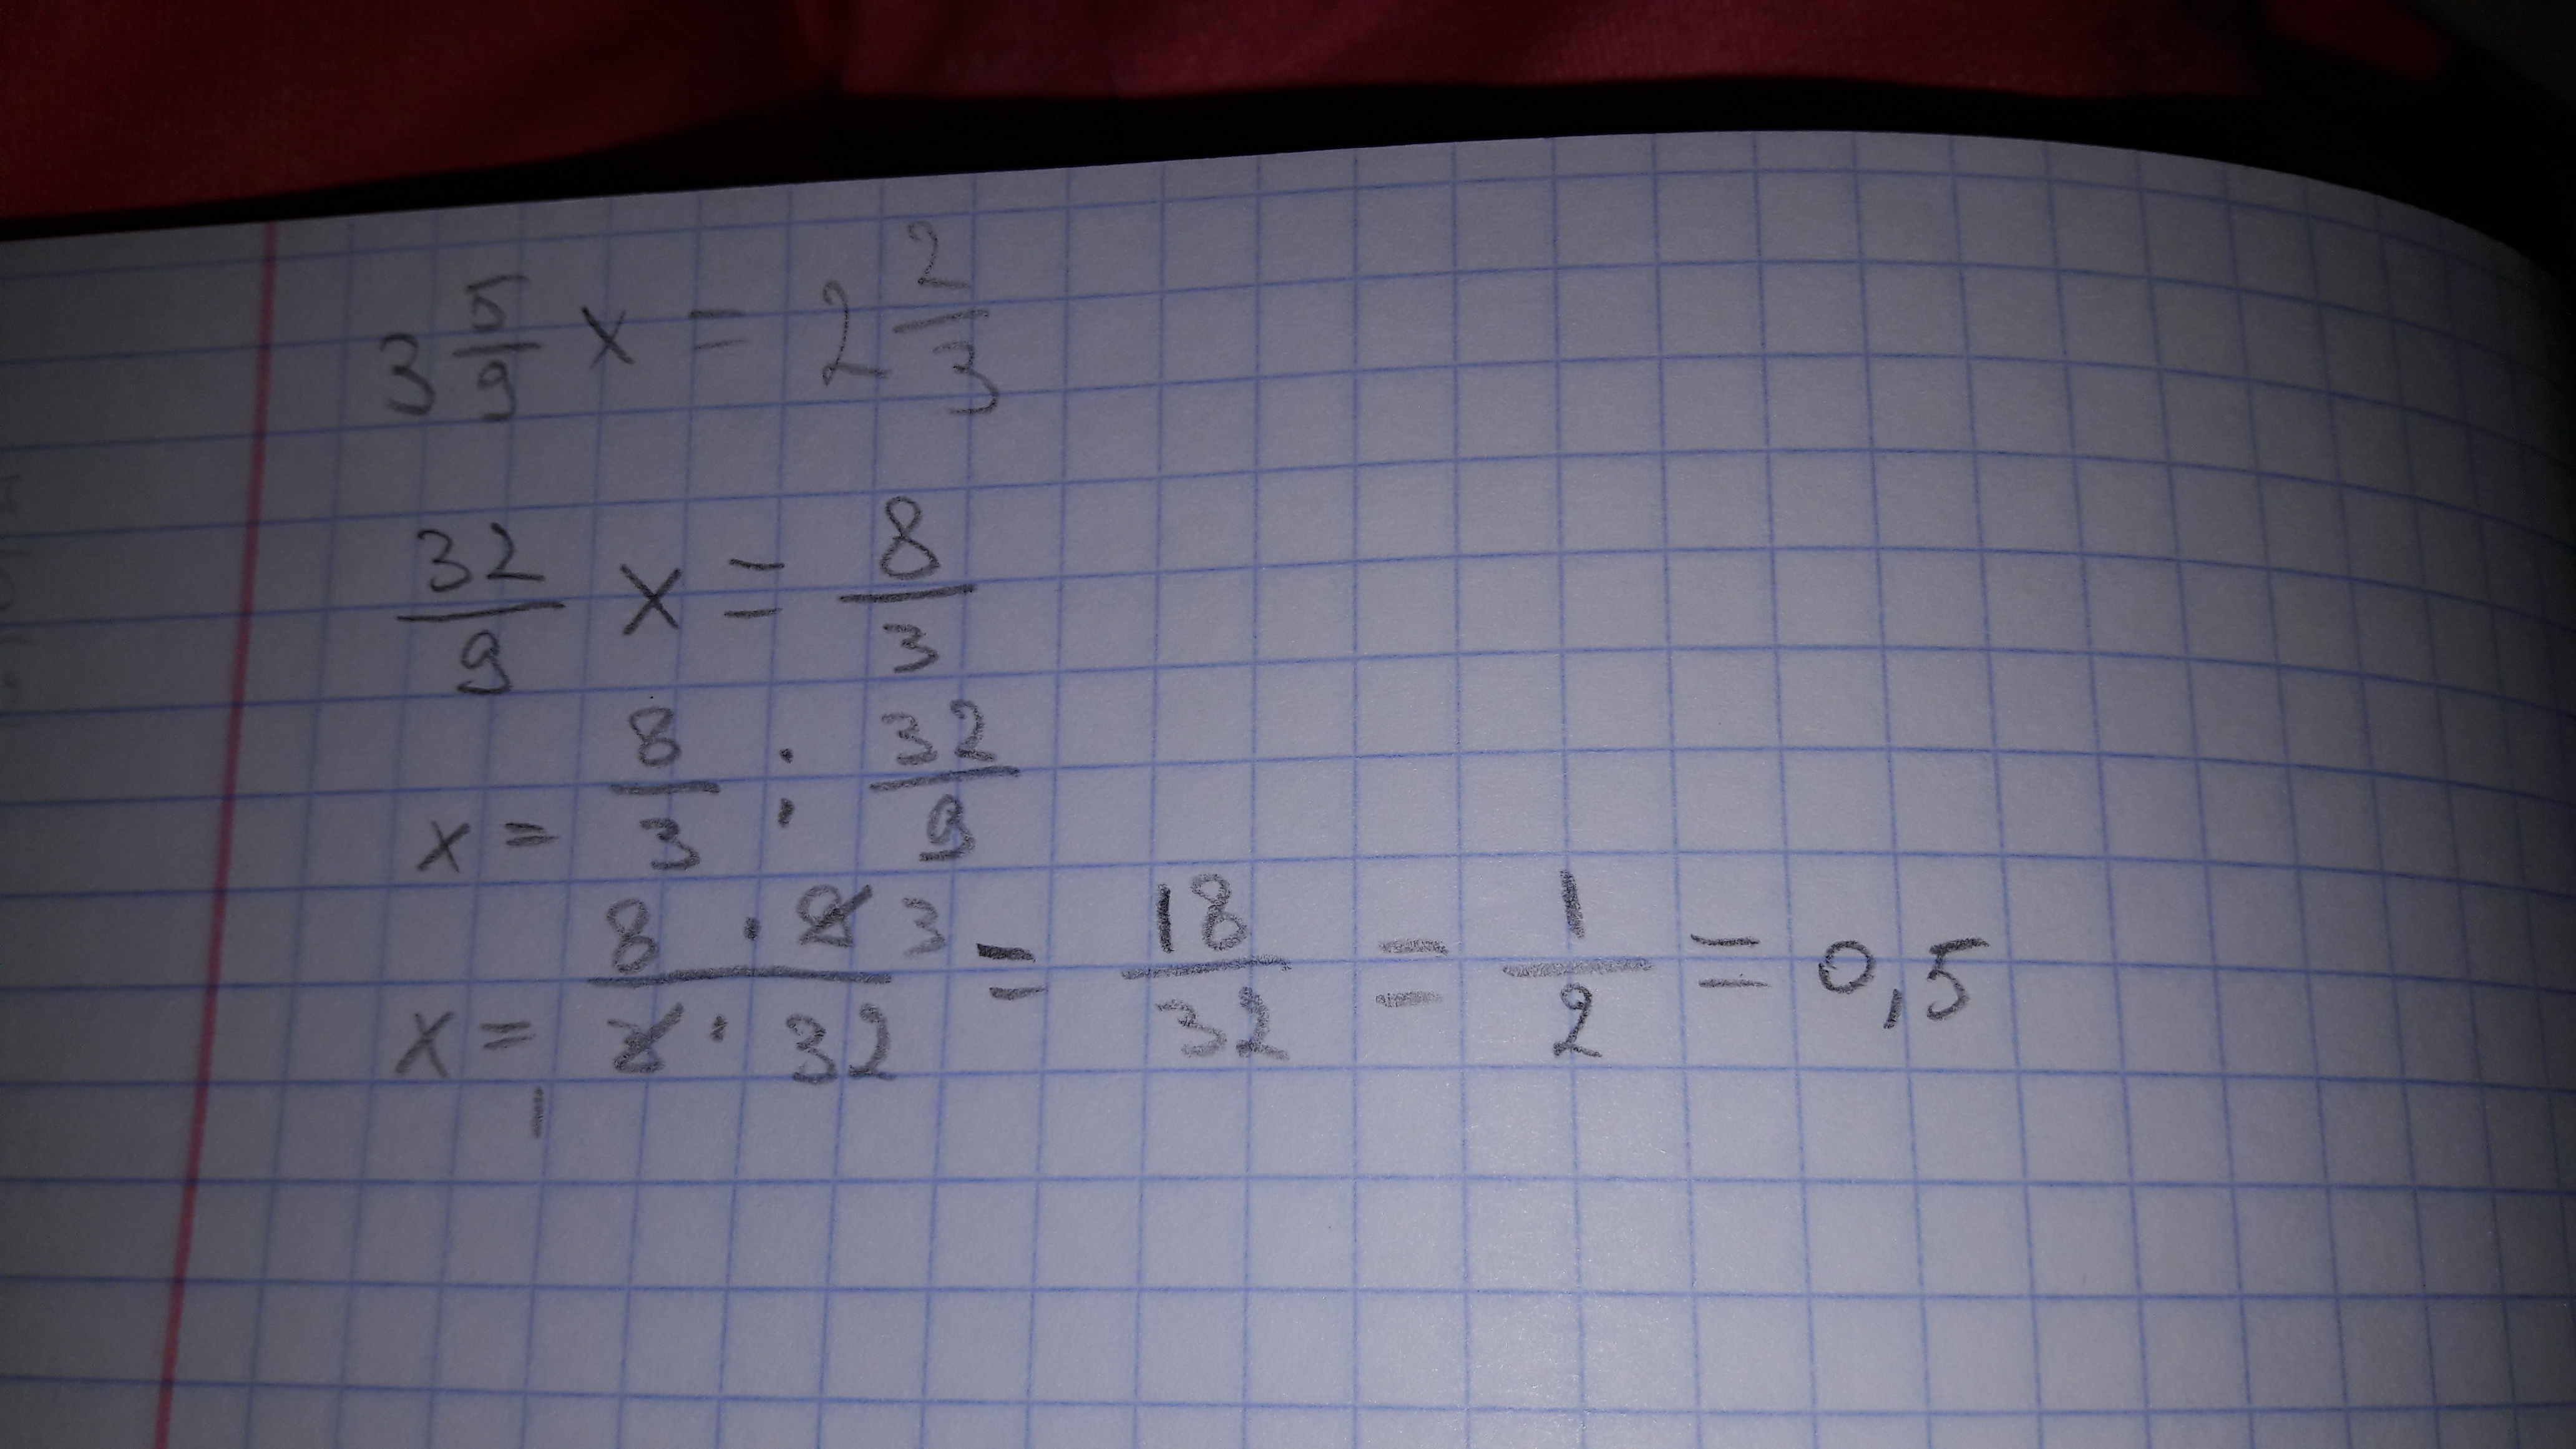 3 5/9 x = 2 2/3
32/9 x = 8/3
x = 8/3 : 32/9
x = 8 · 9 3 / 3 · 32 = 18/32 = 1/2 = 0,5
1